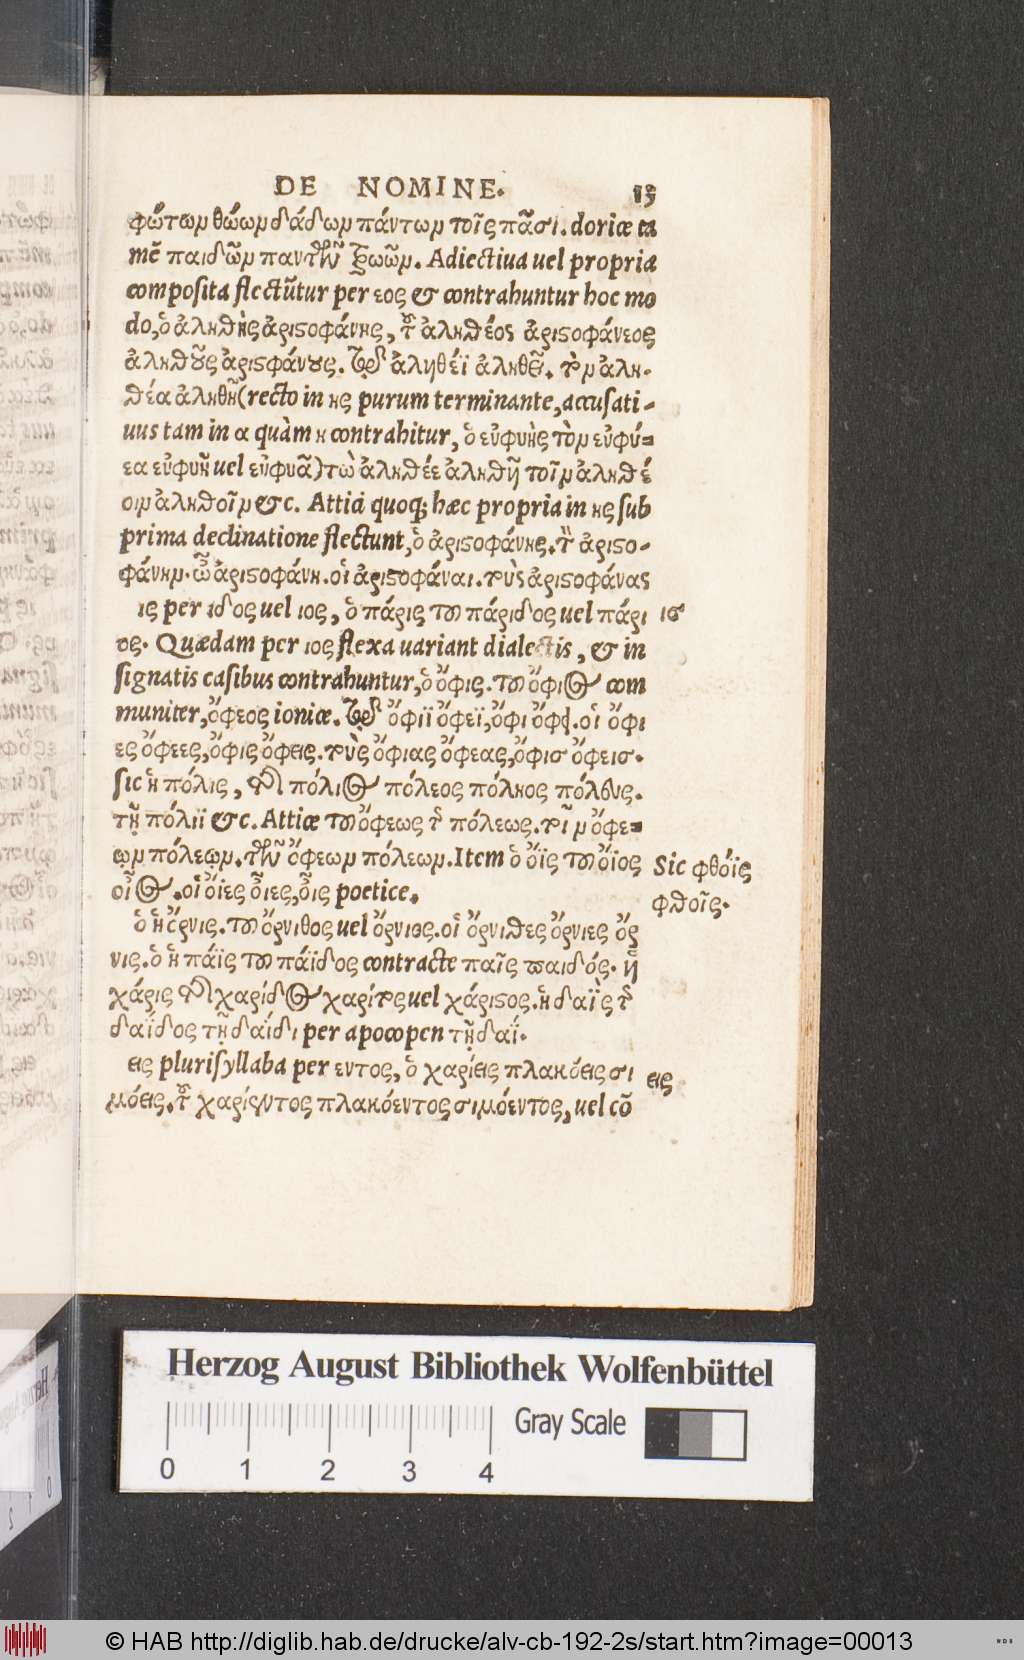 DE NOMINE. 13
φώτωμ θώωμ δάδωμ πάντωμ τοῖς πᾶσι. doricæ ta
mẽ παιδῶμ παντῶν ζωῶμ. Adiectiua uel propria
composita flectũtur per εος & contrahuntur hoc mo
do, ὁ ἀληθὴς ἀριςοφάνης, τοῦ ἀληθέος ἀριςοφάνεος
ἀληθοῦς ἀριςφάνους. τῷ ἀληθέϊ ἀληθεῖ. τὸμ ἀλη-
θέα ἀληθῆ (recto in ης purum terminante, accusati-
uus tam in α quàm η contrahitur, ὁ εὐφυὴς τὸμ εὐφύ-
εα εὐφυῆ uel εὐφυᾶ) τὼ ἀληθέε ἀληθῆ τοῖμ ἀληθέ
οιμ ἀληθοῖμ &c. Attici quoq; hæc propria in ης sub
prima declinatione flectunt, ὁ ἀριςοφάνης. τὸν ἀριςο-
φάνημ. ὦ ἀριςοφάνη. οἱ ἀριςοφάναι. τοὺς ἀριςοφάνας
ις per ιδος uel ιος, ὁ πάρις τοῦ πάριδος uel πάρι ις
ος. Quædam per ιος flexa uariant dialectis, & in
signatis casibus contrahuntur, ὁ ὄφις. τοῦ ὄφιος com
muniter, ὄφεος ionice. τῷ ὄφιϊ ὄφεϊ, ὄφι ὄφει. οἱ ὄφι
ες ὄφεες, ὄφις ὄφεις. τοὺς ὄφιας ὄφεας, ὄφισ ὄφεισ.
sic ἡ πόλις, τῆς πόλιος πόλεος πόληος πόλευς.
τῇ πόλιϊ &c. Atticæ τοῦ ὄφεως τῆς πόλεως. τοῖμ ὄφε-
ῳμ πόλεῳμ. τῶν ὄφεωμ πόλεωμ. Item ὁ ὄϊς τοῦ ὄϊος Sic φθόϊς
οἶος. οἱ ὄϊες οἶες, οἶς poetice. φθοῖς.
ὁ ἡ ὄρνις. τοῦ ὄρνιθος uel ὄρνιος. οἱ ὄρνιθες ὄρνιες ὄρ
νις. ὁ ἡ πάϊς τοῦ πάϊδος contracte παῖς παιδός. ἡ
χάρις τῆς χαρίδος χαρίτος uel χάριτος. ἡ δαῒς τῆς
δαΐδος τῇ δαΐδι per apocopen τῇ δαΐ.
εις plurisyllaba per εντος, ὁ χαρίεις πλακόεις σι εις
μόεις. τοῦ χαρίεντος πλακόεντος σιμόεντος, uel cõ
Herzog August Bibliothek Wolfenbüttel
Gray Scale
0 1 2 3 4
© HAB http://diglib.hab.de/drucke/alv-cb-192-2s/start.htm?image=00013